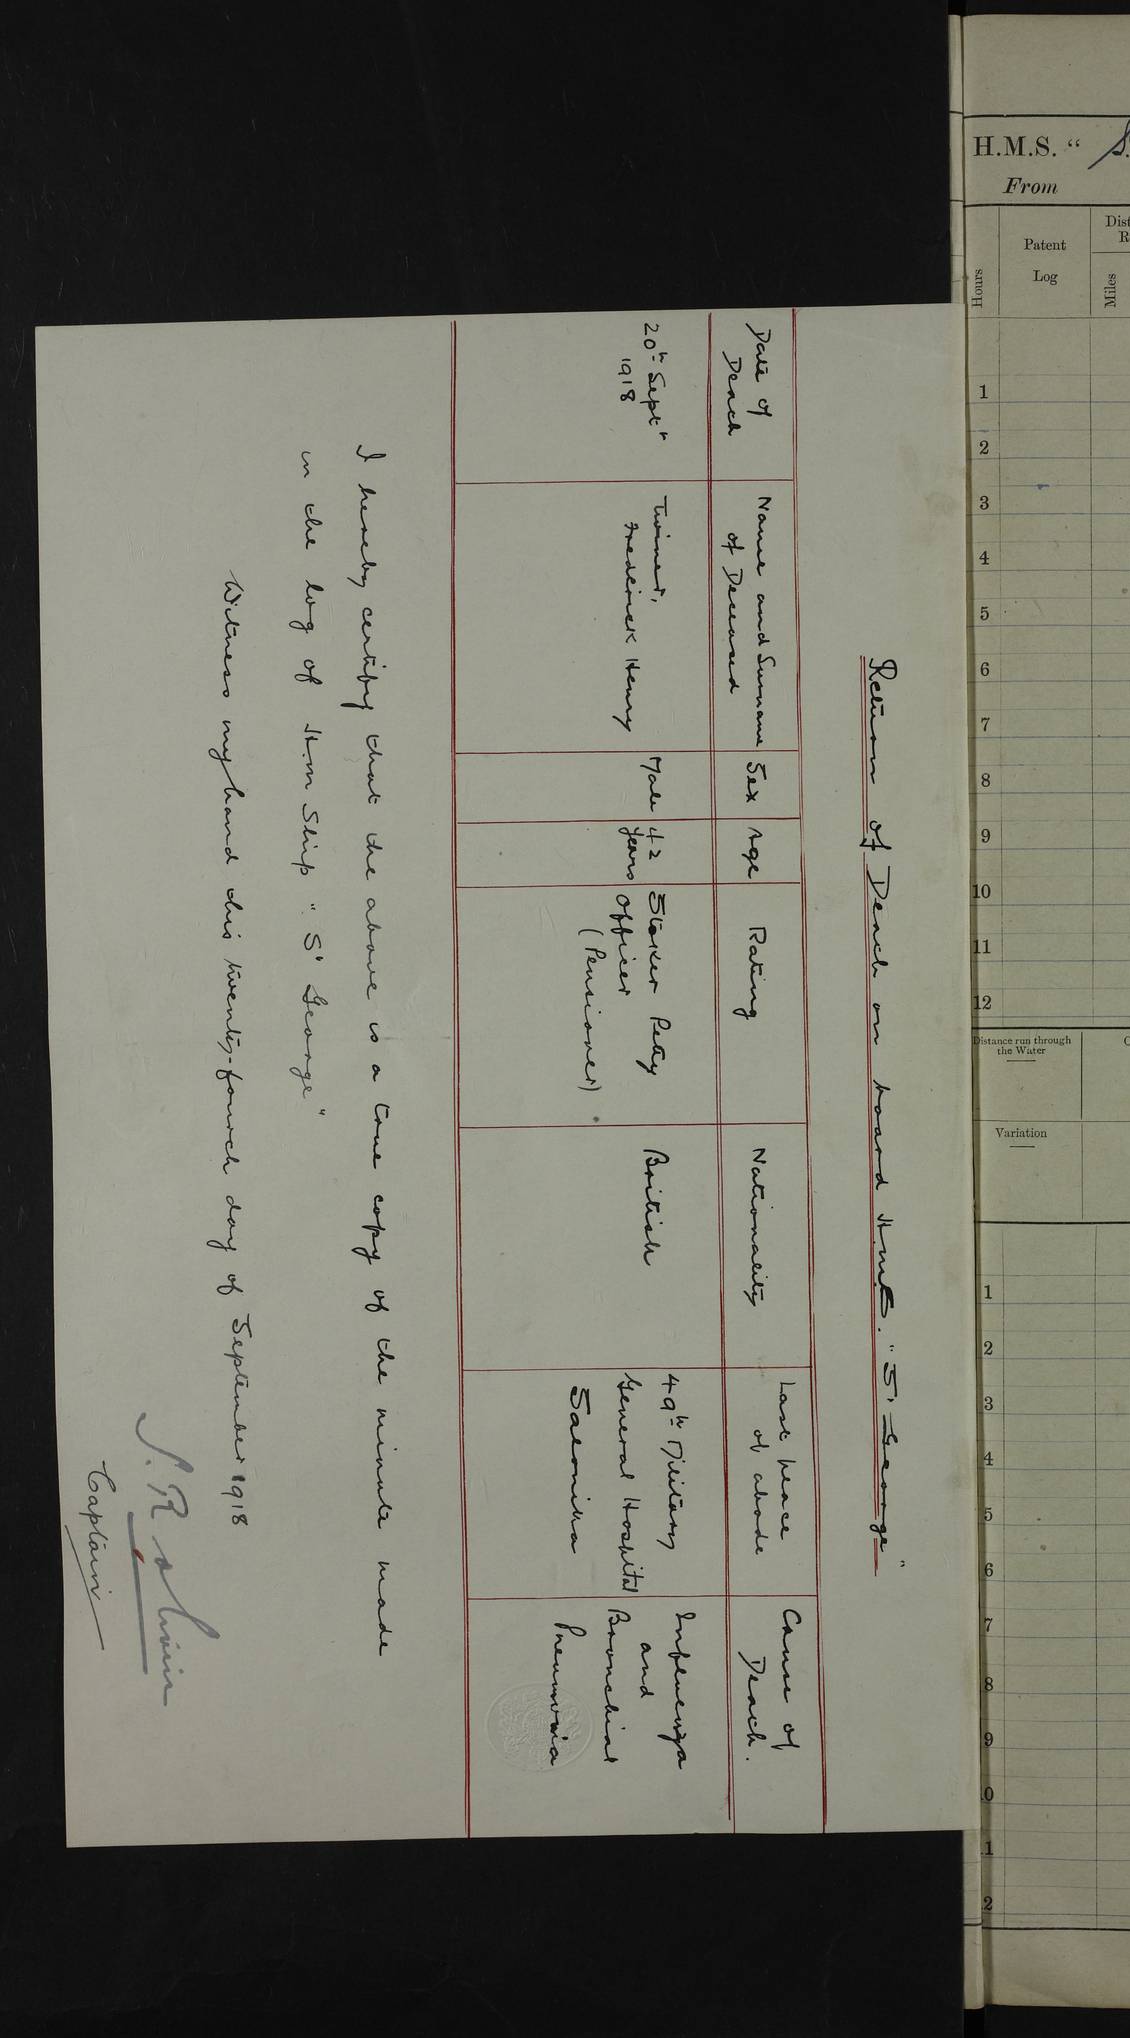 Return of Death on board H.M.S. "St George"
Date of Death
Name and Surname of Deceased
Sex
Age
Rating
Nationality
Last place of abode
Cause of Death.
20th Septr
1918
Twiner,
Frederick Henry
Male
42
years
Stoker Petty
Officer
(Pensioner)
British
49th Military
General Hospital
Salonika
Influenza
and
Bronchial
Pneumonia
I hereby certify that the above is a true copy of the minute made
in the log of H.M. Ship "St George"
Witness my hand this twenty-fourth day of September 1918
Captain
H.M.S. "S
From
Hours
Patent
Log
Dist
R
Miles
1
2
3
4
5
6
7
8
9
10
11
12
Distance run through
the Water
Variation
1
2
3
4
5
6
7
8
9
0
1
2